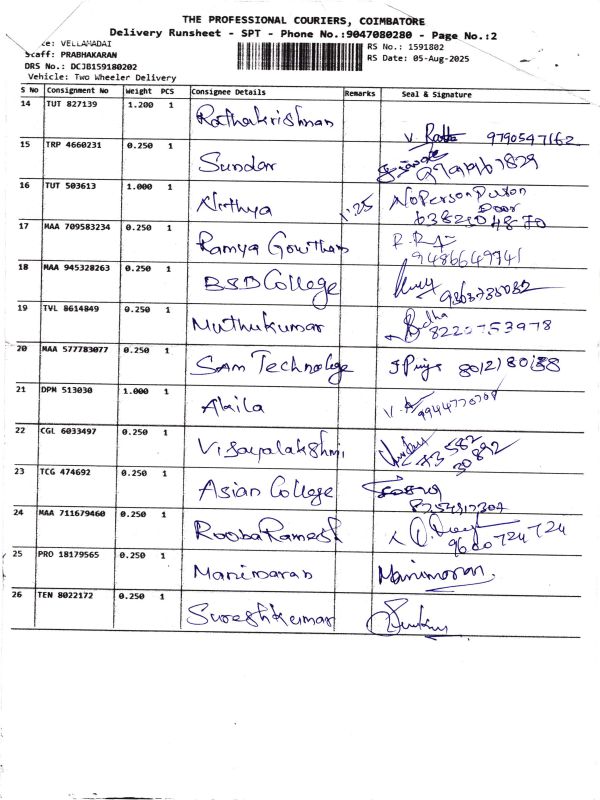 THE PROFESSIONAL COURIERS, COIMBATORE
Delivery Runsheet - SPT - Phone No.:9047080280 - Page No.:2
VELLAMADAI
Staff: PRABHAKARAN
RS No.: 1591802
DRS No.: DCJB159180202
RS Date: 05-Aug-2025
Vehicle: Two Wheeler Delivery
S No Consignment No Weight PCS Consignee Details Remarks Seal & Signature
14 TUT 827139 1.200 1 Rathakrishnan
9790547162
15 TRP 4660231 0.250 1 Sundar
16 TUT 503613 1.000 1 Nithya 1.25 No Person Put on
Door
17 MAA 709583234 0.250 1 Ramya Gowtham
9486649741
18 MAA 945328263 0.250 1 BSD College
19 TVL 8614849 0.250 1 Muthukumar
8220753978
20 MAA 577783077 0.250 1 SAM Technologe
21 DPM 513030 1.000 1 Akila
22 CGL 6033497 0.250 1 Vijayalakshmi
73582
30892
23 TCG 474692 0.250 1 Asian College
24 MAA 711679460 0.250 1 Rooba Ramesh
9600724724
25 PRO 18179565 0.250 1 Manimaran Manimaran
26 TEN 8022172 0.250 1 Sureshkumar